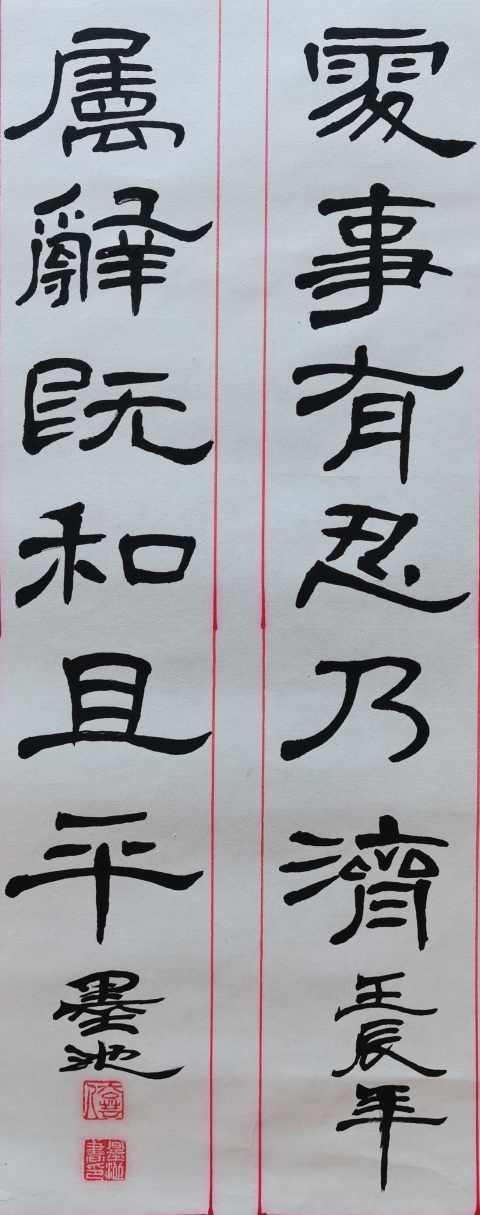 處事有忍乃濟
壬辰年
屬辭既和且平
墨池
墨池書印